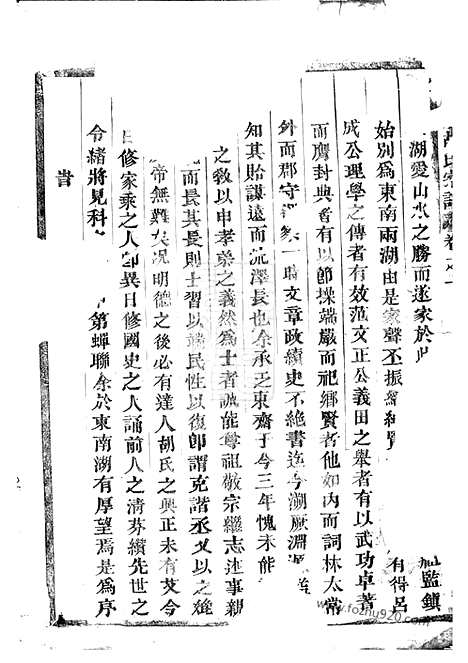 胡氏宗譜 卷之一
監鎮
有得呂
湖愛山水之勝而遂家於
始別為東南兩湖由是家聲丕振
成公理學之傳者有效范文正公義田之舉者有以武功卓著
而膺封典者有以節操端嚴而祀鄉賢者他如内而詞林太常
外而郡守 一時文章政績史不絕書迄今溯厥淵源
知其貽謀遠而流澤長也余承乏東齋于今三年愧未能
之敎以申孝弟之義然為士者誠能尊祖敬宗繼志述事親
而長其長則士習以端民性以復即謂克諧丕乂以之雍
帝無難矣况明德之後必有達人胡氏之興正未有艾今
日修家乘之人即異日修國史之人誦前人之清芬纘先世之
令緒將見科 第蟬聯余於東南湖有厚望焉是為序
旹
www.fozhu920.com